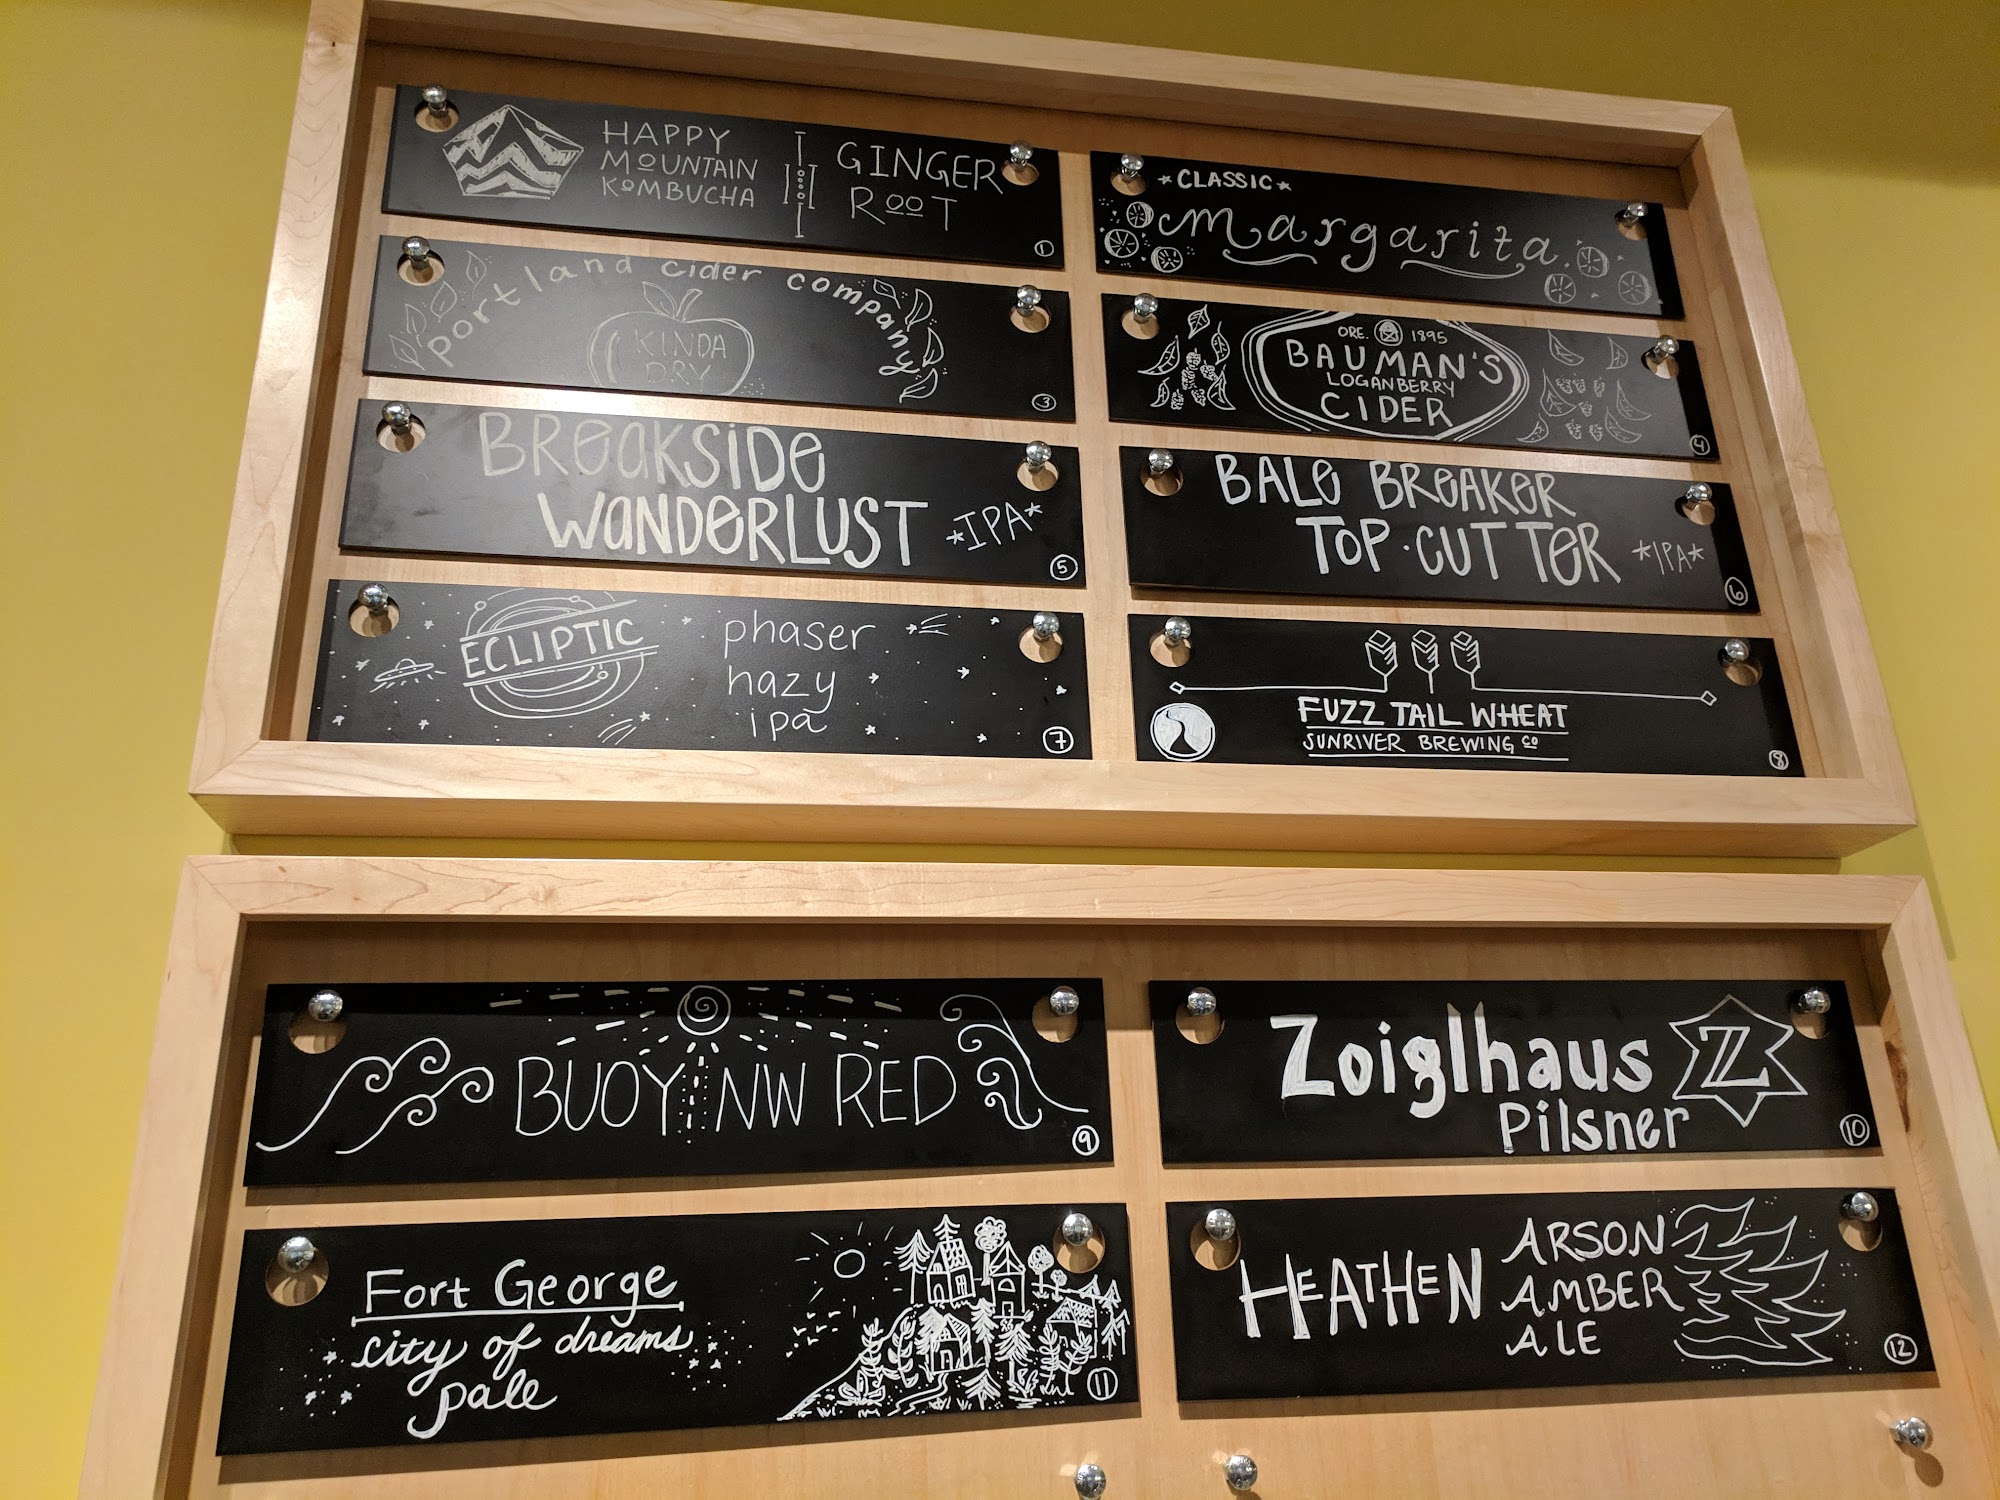 HAPPY
MOUNTAIN
KOMBUCHA
GINGER
ROOT
1
*CLASSIC*
margarita
portland cider company
KINDA
DRY
3
ORE. 1895
BAUMAN'S
LOGANBERRY
CIDER
4
BREAKSIDE
WANDERLUST
*IPA*
5
BALE BREAKER
TOP·CUTTER
*IPA*
6
ECLIPTIC
phaser
hazy
ipa
7
FUZZ TAIL WHEAT
SUNRIVER BREWING CO
8
BUOY NW RED
9
Zoiglhaus
Pilsner
Z
10
Fort George
city of dreams
pale
11
HEATHEN
ARSON
AMBER
ALE
12